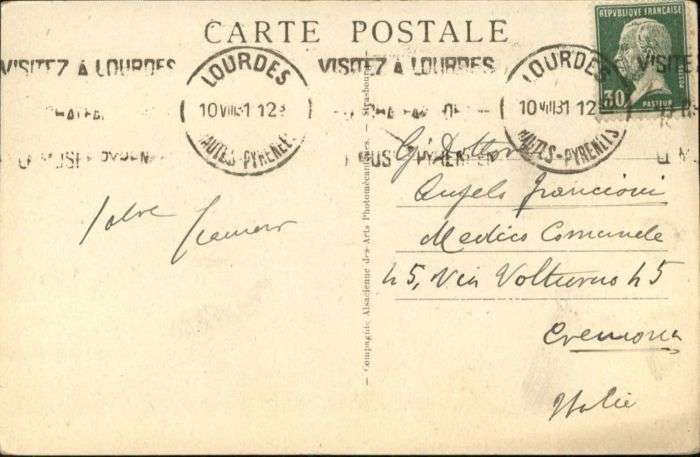 CARTE POSTALE
REPUBLIQUE FRANÇAISE
30
PASTEUR
VISITEZ À LOURDES
LOURDES
10 VIII 31 12
HAUTES-PYRENEES
VISITEZ À LOURDES
LOURDES
10 VIII 31 12
HAUTES-PYRENEES
LE MUSÉE PYRENEEN
Compagnie Alsacienne des Arts Photomécaniques. - Strasbourg
Salve
Dottor
Angelo Francioni
Medico Comunale
45, Via Volturno 45
Cremona
Italie